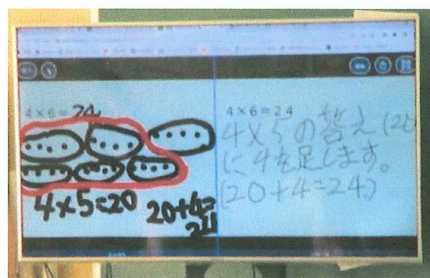 4×6=24
4×5=20
20+4=
24
4×6=24
4×5の答え(20
に4を足します。
(20+4=24)